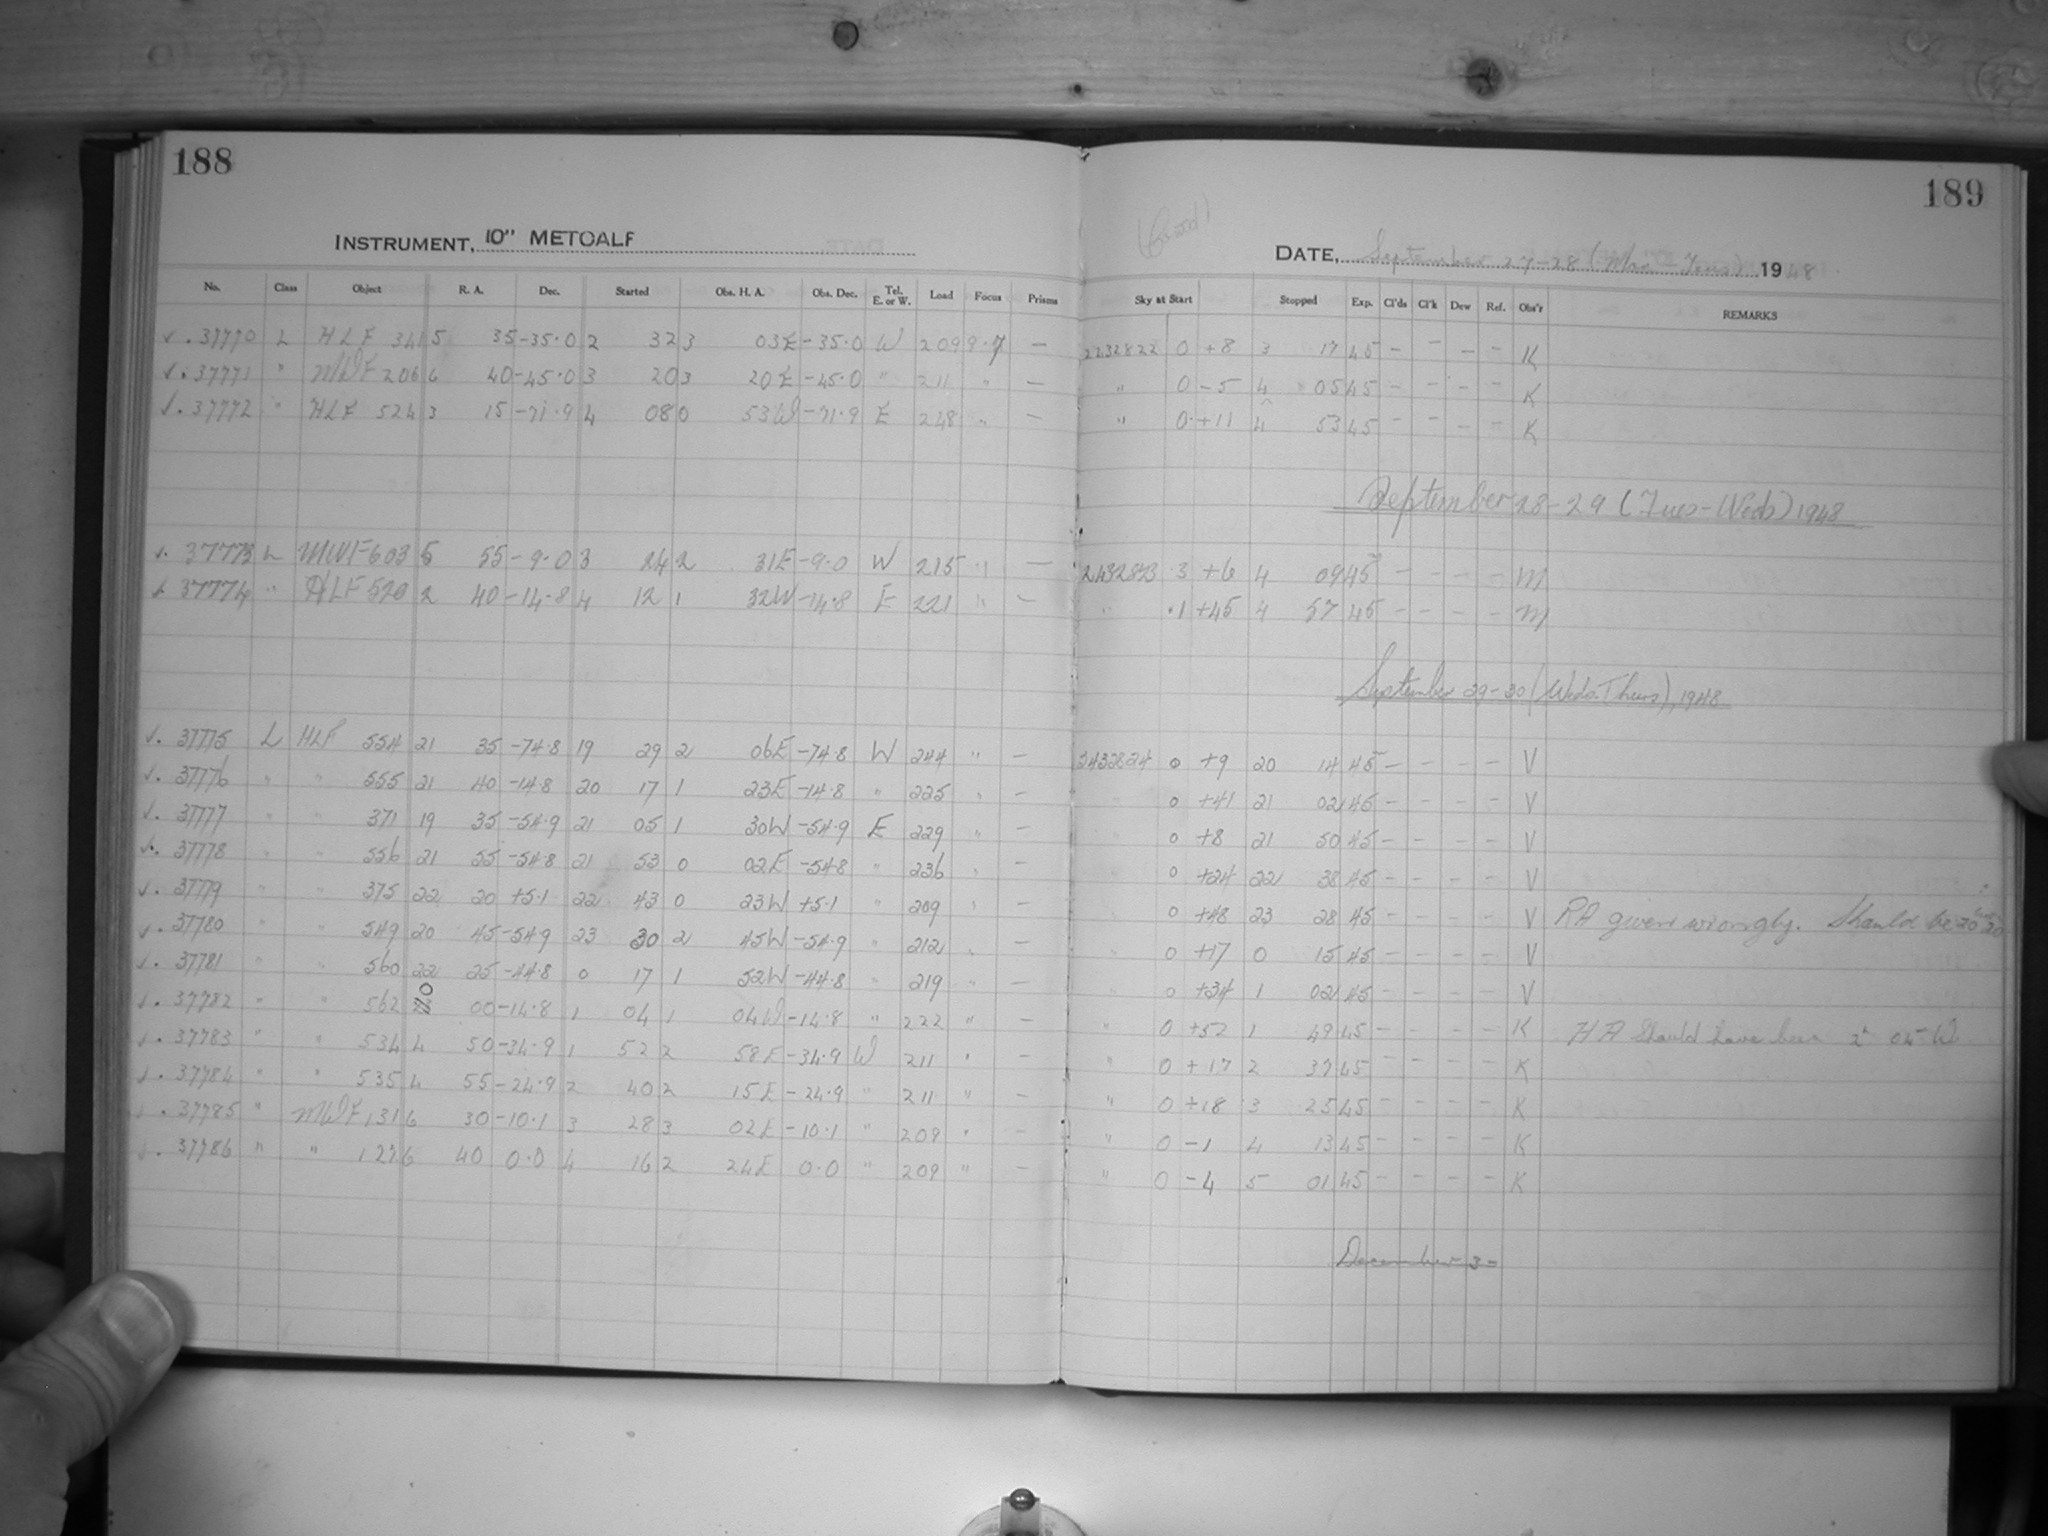 188
189
INSTRUMENT, 10" METCALF
(Contd)
DATE, September 27-28 (Mon-Tues) 1948
No. Class Object R. A. Dec. Started Obs. H. A. Obs. Dec. Tel. E. or W. Load Focus Prisms Sky at Start Stopped Exp. Cl'ds Cl'k Dew Ref. Obs'r REMARKS
√. 37770 L HLF 341 5 35 -35.0 2 32 3 03E -35.0 W 209 9.7 — 2432822 0 +8 3 17 45 - - - - K
√. 37771 " MWF 206 6 40 -45.0 3 20 3 20E -45.0 " 211 " — " 0 -5 4 05 45 - - - - K
√. 37772 " HLF 524 3 15 -71.9 4 08 0 53W -71.9 E 248 " — " 0 +11 4 53 45 - - - - K
September 28-29 (Tues-Weds) 1948
√. 37773 L MWF 603 5 55 -9.0 3 24 2 31E -9.0 W 215 " — 2432823 .3 +6 4 09 45 - - - - M
√. 37774 " HLF 520 2 40 -14.8 4 12 1 32W -14.8 E 221 " — " .1 +45 4 57 45 - - - - M
September 29-30 (Weds-Thurs), 1948
√. 37775 L HLF 554 21 35 -74.8 19 29 2 06E -74.8 W 244 " — 2432824 0 +9 20 14 45 - - - - V
√. 37776 " " 555 21 40 -14.8 20 17 1 23E -14.8 " 225 " — " 0 +41 21 02 45 - - - - V
√. 37777 " " 371 19 35 -54.9 21 05 1 30W -54.9 E 229 " — 0 +8 21 50 45 - - - - V
√. 37778 " " 556 21 55 -54.8 21 53 0 02E -54.8 " 236 " — 0 +24 22 38 45 - - - - V
√. 37779 " " 375 22 20 +5.1 22 43 0 23W +5.1 " 209 " — 0 +48 23 28 45 - - - - V RA given wrongly. Should be 20
√. 37780 " " 549 20 45 -54.9 23 30 2 45W -54.9 " 212 " — 0 +17 0 15 45 - - - - V
√. 37781 " " 560 22 25 -44.8 0 17 1 52W -44.8 " 219 " — 0 +34 1 02 45 - - - - V
√. 37782 " " 562 0 00 -14.8 1 04 1 04W -14.8 " 222 " — " 0 +52 1 49 45 - - - - K HA Should have been 2h 04m W
√. 37783 " " 534 4 50 -34.9 1 52 2 58E -34.9 W 211 " — 0 +17 2 37 45 - - - - K
√. 37784 " " 535 4 55 -24.9 2 40 2 15E -24.9 " 211 " — " 0 +18 3 25 45 - - - - K
√. 37785 " MWF 131 6 30 -10.1 3 28 3 02E -10.1 " 209 " — " 0 -1 4 13 45 - - - - K
√. 37786 " " 127 6 40 0.0 4 16 2 24E 0.0 " 209 " — " 0 -4 5 01 45 - - - - K
December 3-